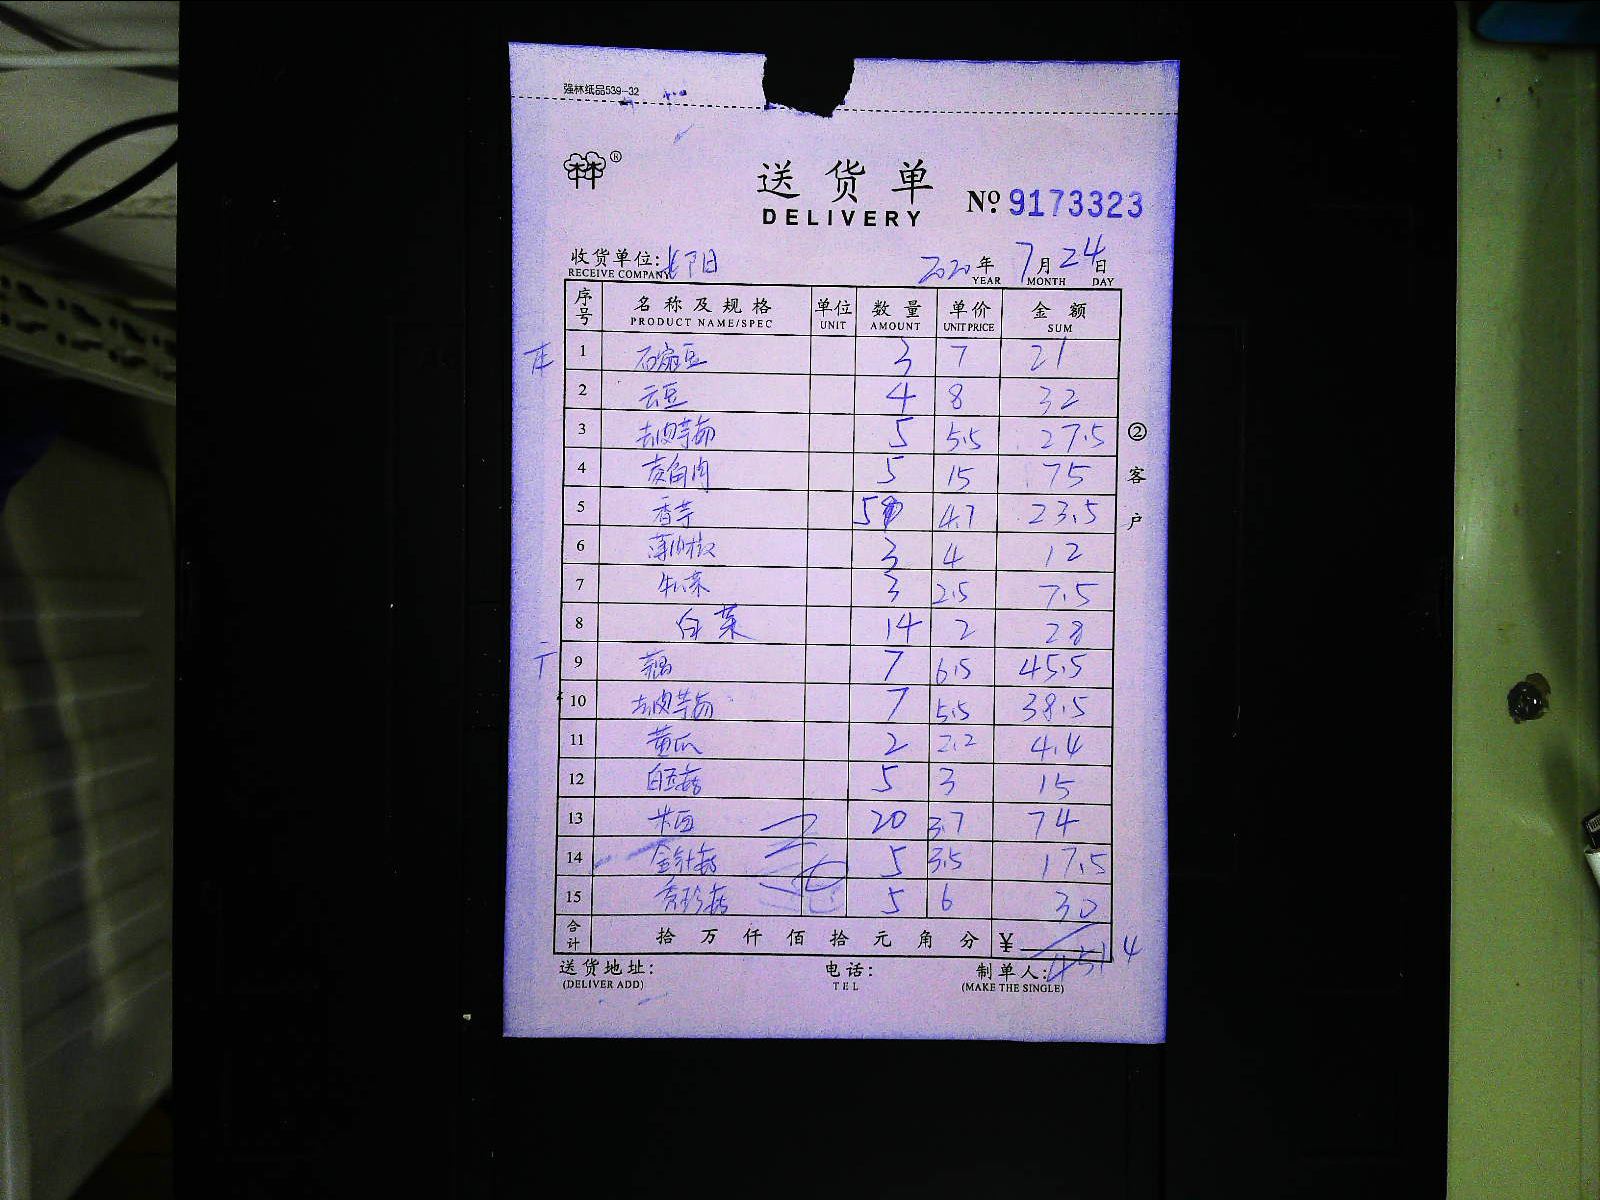 强林纸品539-32
送货单 №. 9173323
DELIVERY
收货单位: 2020年7月24日
RECEIVE COMPANY YEAR MONTH DAY
序号 名称及规格 单位 数量 单价 金额
PRODUCT NAME/SPEC UNIT AMOUNT UNIT PRICE SUM
1 石扁豆 3 7 21
2 云豆 4 8 32
3 去皮芋艿 5 5.5 27.5
4 茭白肉 5 15 75
5 香芋 5 4.7 23.5
6 薄肉椒 3 4 12
7 3 2.5 7.5
8 白菜 14 2 28
9 藕 7 6.5 45.5
10 去皮芋艿 7 5.5 38.5
11 黄瓜 2 2.2 4.4
12 白玉菇 5 3 15
13 米豆 20 3.7 74
14 金针菇 5 3.5 17.5
15 秀珍菇 5 6 30
合计 拾万仟佰拾元角分 ¥ 451.4
②客户
送货地址: 电话: 制单人:
(DELIVER ADD) TEL (MAKE THE SINGLE)